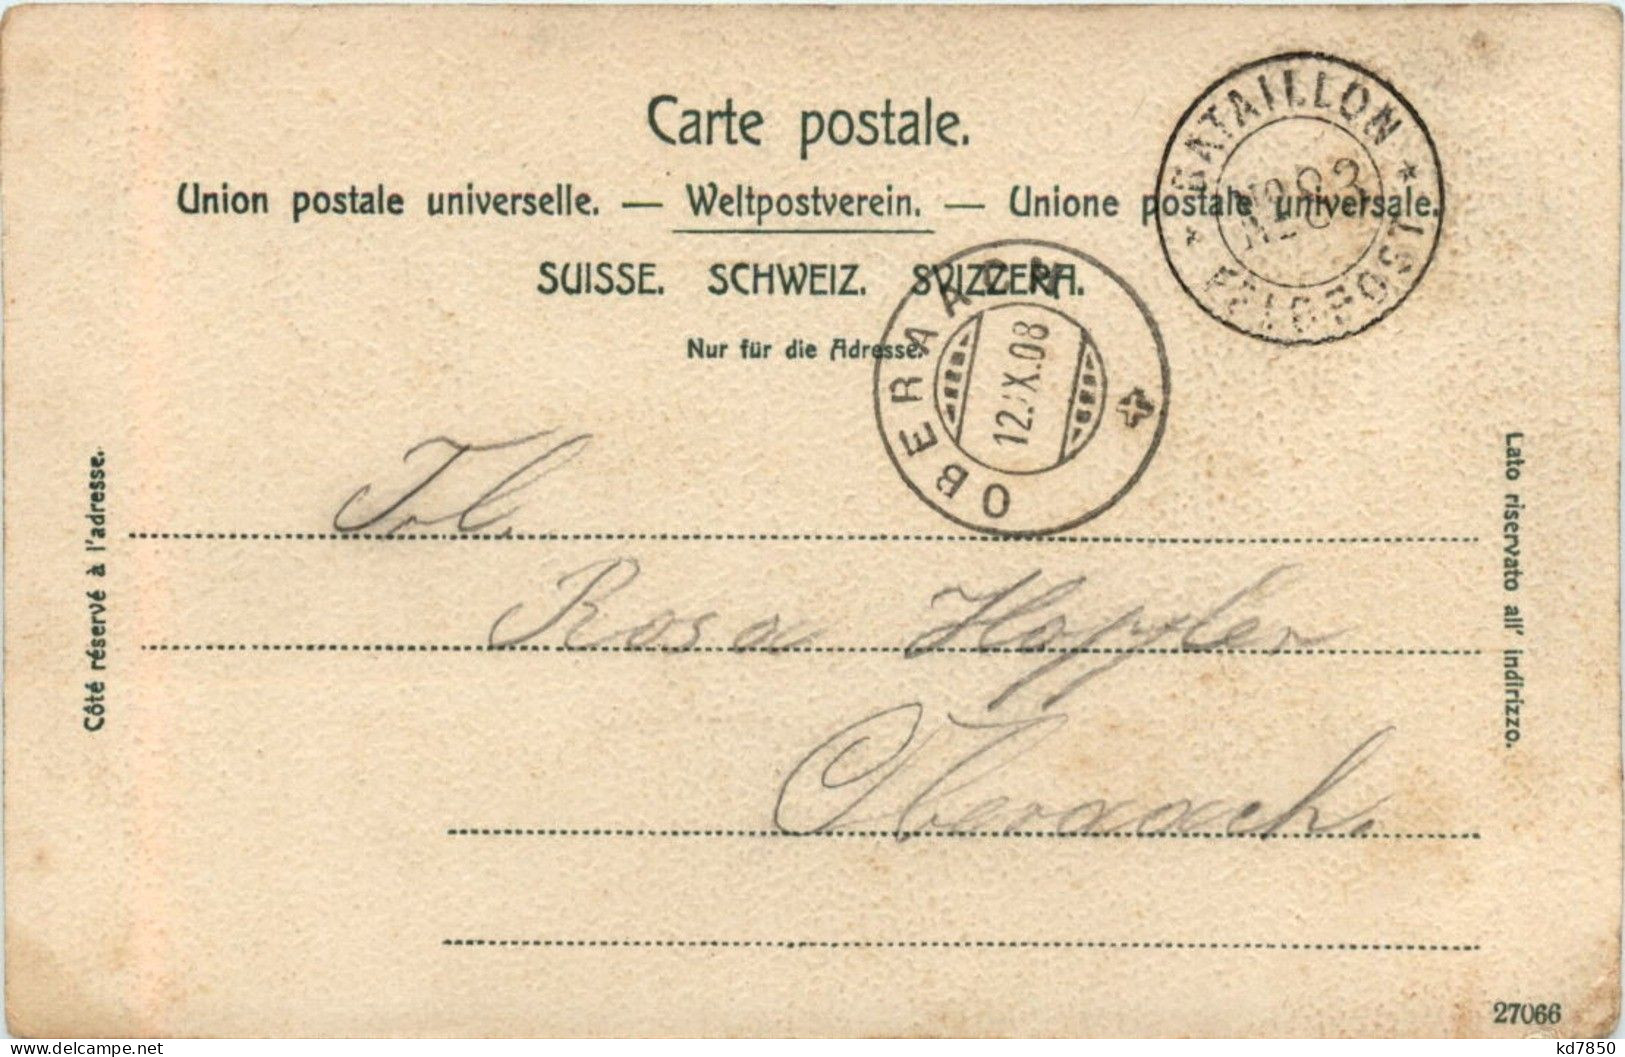 Carte postale.
Union postale universelle. — Weltpostverein. — Unione postale universale.
SUISSE. SCHWEIZ. SVIZZERA.
Nur für die Adresse.
BATAILLON
No 83
FELDPOST
OBERAACH
12.IX.08
Côté réservé à l'adresse.
Lato riservato all' indirizzo.
Frl.
Rosa
Oberaach.
27066
www.delcampe.net
kd7850